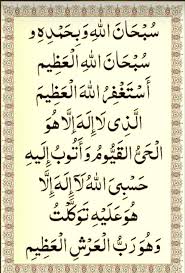 سُبْحَانَ اللهِ وَبِحَمْدِهِ وَ
سُبْحَانَ اللهِ الْعَظِيمِ
أَسْتَغْفِرُ اللهَ الْعَظِيمَ
الَّذِي لَا إِلَهَ إِلَّا هُوَ
الْحَيُّ الْقَيُّومُ وَأَتُوبُ إِلَيْهِ
حَسْبِيَ اللهُ لَا إِلَهَ إِلَّا
هُوَ عَلَيْهِ تَوَكَّلْتُ
وَهُوَ رَبُّ الْعَرْشِ الْعَظِيمِ